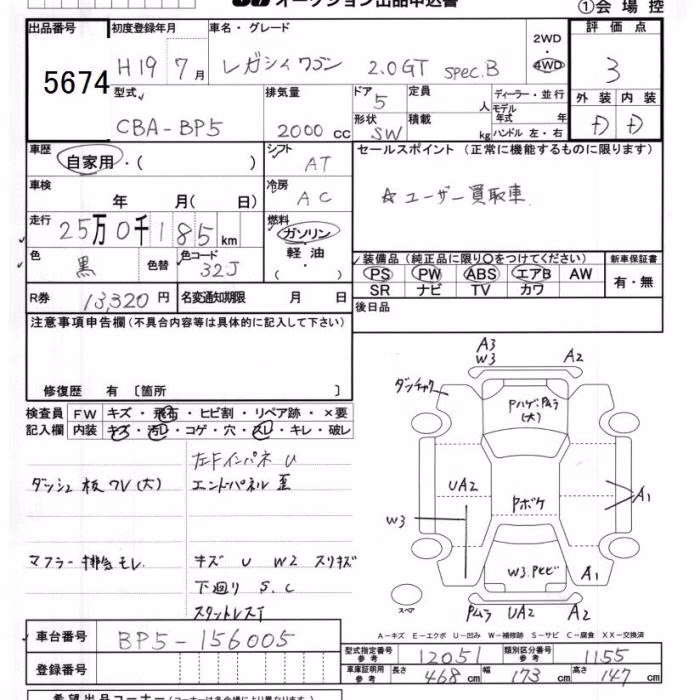 オークション出品申込書
①会場控
出品番号 初度登録年月 車名・グレード 2WD・4WD 評価点
5674 H19 7月 レガシィワゴン 2.0GT spec.B 3
型式 排気量 ドア 定員 ディーラー・並行 外装 内装
CBA-BP5 2000 cc 5 人 モデル年式 年 D D
形状 積載 kg ハンドル 左・右
SW
車歴 シフト セールスポイント (正常に機能するものに限ります)
自家用・( ) AT
☆ユーザー買取車
車検 年 月( 日) 冷房 AC
走行 25万0千185km 燃料 ガソリン・軽油・( )
色 黒 色替 色コード 32J
装備品(純正品に限り○をつけてください) 新車保証書
PS PW ABS エアB AW 有・無
SR ナビ TV カワ
R券 13,320円 名変通知期限 月 日
後日品
注意事項申告欄(不具合内容等は具体的に記入して下さい)
修復歴 有 〔箇所 〕
検査員 FW キズ・飛石・ヒビ割・リペア跡・×要
記入欄 内装 キズ・汚レ・コゲ・穴・スレ・キレ・破レ
左Fインパネ U
ダッシュ板ワレ(大) エンドパネル歪
マフラー排気モレ キズ U W2 スリキズ
下廻り S.C
スタットレスT
A3
W3 A2
ダンチャク
Pハゲ:Pムラ
(大)
UA2 Pボケ A1
W3
W3.Pヒビ A1
スペア Pムラ UA2 A2
A－キズ E－エクボ U－凹み W－補修跡 S－サビ C－腐食 XX－交換済
車台番号 BP5-156005
型式指定番号 参考 12051 類別区分番号 参考 1155
登録番号
車庫証明用 参考 長さ 468cm 幅 173cm 高さ 147cm
希望出品コーナー(コーナーは各会場により異なります。)